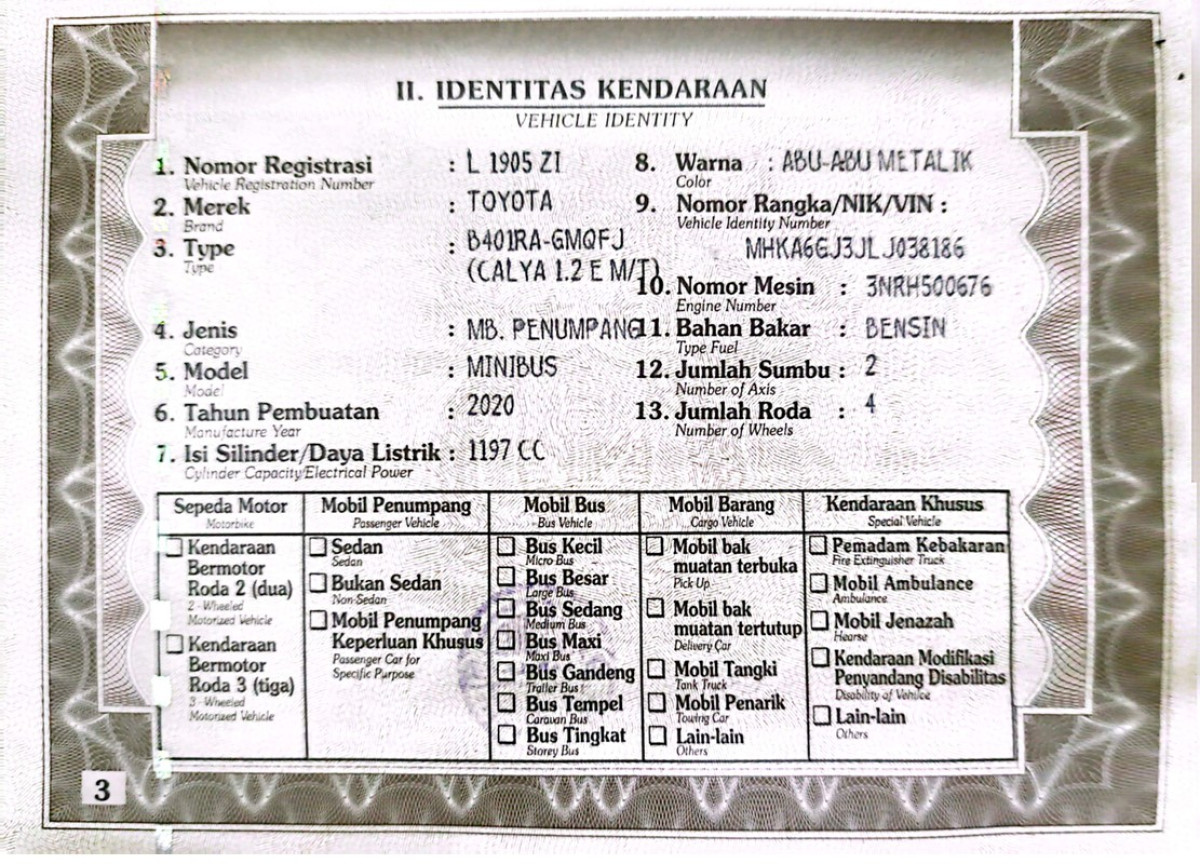 II. IDENTITAS KENDARAAN
VEHICLE IDENTITY
1. Nomor Registrasi : L 1905 ZI
Vehicle Registration Number
2. Merek : TOYOTA
Brand
3. Type : B401RA-GMQFJ
Type
(CALYA 1.2 E M/T)
4. Jenis : MB. PENUMPANG
Category
5. Model : MINIBUS
Model
6. Tahun Pembuatan : 2020
Manufacture Year
7. Isi Silinder/Daya Listrik : 1197 CC
Cylinder Capacity/Electrical Power
8. Warna : ABU-ABU METALIK
Color
9. Nomor Rangka/NIK/VIN :
Vehicle Identity Number
MHKA6GJ3JLJ038186
10. Nomor Mesin : 3NRH500676
Engine Number
11. Bahan Bakar : BENSIN
Type Fuel
12. Jumlah Sumbu : 2
Number of Axis
13. Jumlah Roda : 4
Number of Wheels
Sepeda Motor
Motorbike
Kendaraan
Bermotor
Roda 2 (dua)
2 - Wheeled
Motorized Vehicle
Kendaraan
Bermotor
Roda 3 (tiga)
3 - Wheeled
Motorized Vehicle
Mobil Penumpang
Passenger Vehicle
Sedan
Sedan
Bukan Sedan
Non-Sedan
Mobil Penumpang
Keperluan Khusus
Passenger Car for
Specific Purpose
Mobil Bus
Bus Vehicle
Bus Kecil
Micro Bus
Bus Besar
Large Bus
Bus Sedang
Medium Bus
Bus Maxi
Maxi Bus
Bus Gandeng
Trailer Bus
Bus Tempel
Caravan Bus
Bus Tingkat
Storey Bus
Mobil Barang
Cargo Vehicle
Mobil bak
muatan terbuka
Pick Up
Mobil bak
muatan tertutup
Delivery Car
Mobil Tangki
Tank Truck
Mobil Penarik
Towing Car
Lain-lain
Others
Kendaraan Khusus
Special Vehicle
Pemadam Kebakaran
Fire Extinguisher Truck
Mobil Ambulance
Ambulance
Mobil Jenazah
Hearse
Kendaraan Modifikasi
Penyandang Disabilitas
Disability of Vehilce
Lain-lain
Others
3